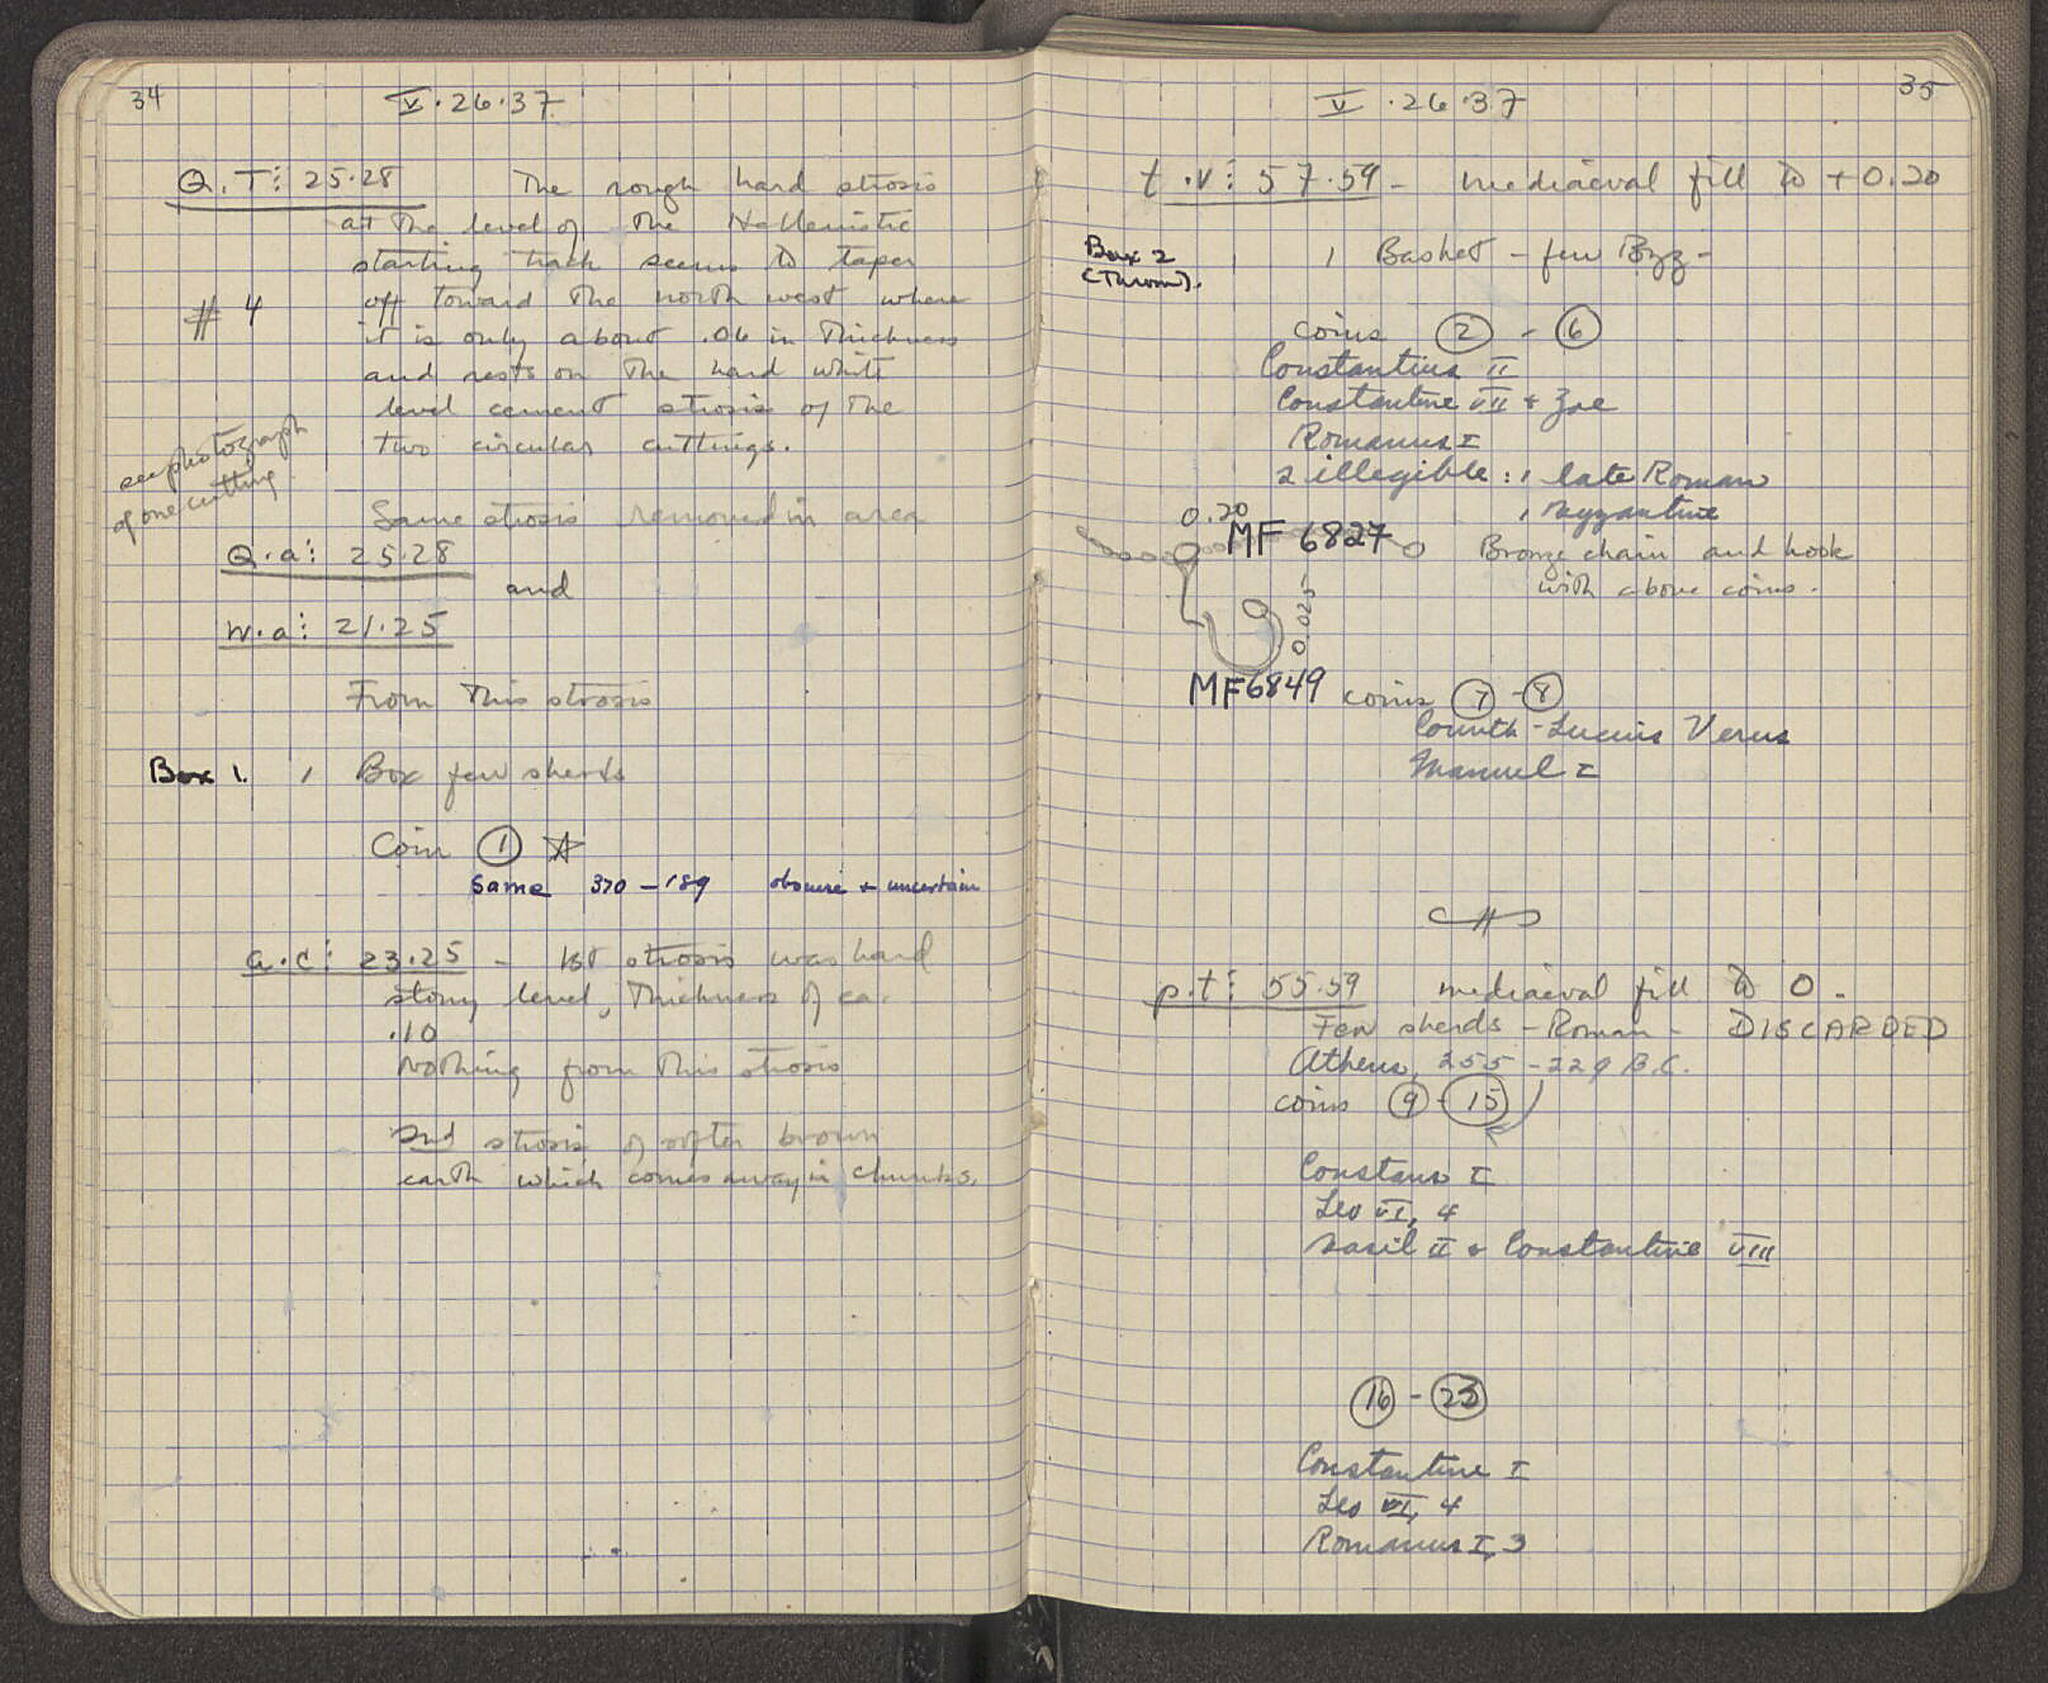 34
V.26.37
Q.T: 25.28 The rough hard strosis
at the level of the Hellenistic
starting track seems to taper
# 4 off toward the north west where
it is only about .06 in thickness
and rests on the hard white
level cement strosis of the
two circular cuttings.
see photograph
of one cutting.
Same strosis removed in area
Q.a: 25.28
and
W.a: 21.25
From this strosis
Box 1. 1 Box few sherds
Coin 1 ☆
Same 370-189 obscure + uncertain
a.c: 23.25 - 1st strosis was hard
stony level, thickness of ca.
.10
Nothing from this strosis
2nd strosis of softer brown
earth which comes away in chunks.
35
V.26.37
t.v: 57.59 - mediaeval fill to +0.20
Box 2 1 Basket - few Byz -
(Thrown).
coins 2 - 6
Constantius II
Constantine VII + Zoe
Romanus I
2 illegible: 1 late Roman
1 Byzantine
0.20
MF 6827 Bronze chain and hook
with above coins.
0.025
MF6849 coins 7 - 8
Corinth - Lucius Verus
Manuel I
p.t: 55.59 mediaeval fill to 0.
Few sherds - Roman - DISCARDED
Athens, 255-229 B.C.
coins 9 - 15
Constans I
Leo VI, 4
Basil II + Constantine VIII
16 - 23
Constantine I
Leo VI, 4
Romanus I, 3